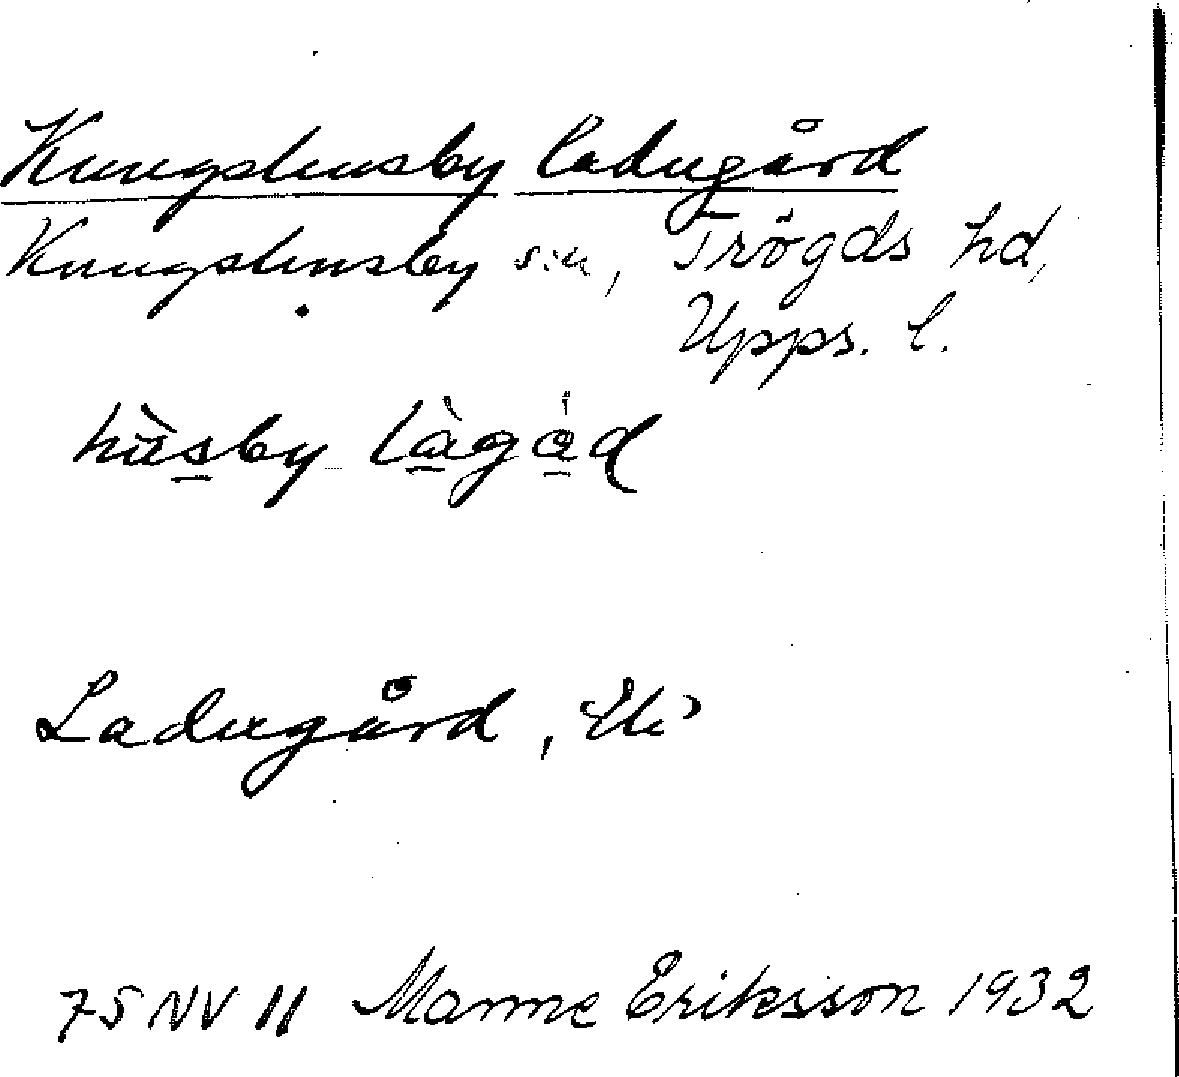 Kungshusby ladugård
Kungshusby sn, Trögds hd,
Upps. l.
hùsby làgåd
Ladugård, Ek
75 NV 11 Manne Eriksson 1932